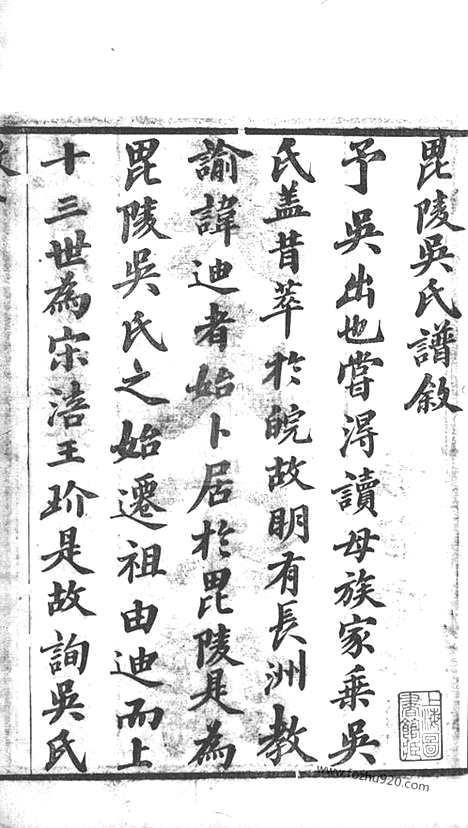 毘陵吳氏譜敘
予吳出也嘗得讀母族家乗吳
氏盖昔萃於皖故明有長洲教
諭諱迪者始卜居於毘陵是為
毘陵吳氏之始遷祖由迪而上
十三世為宋涪王玠是故詢吳氏
上海圖
書館藏
www.fozhu920.com